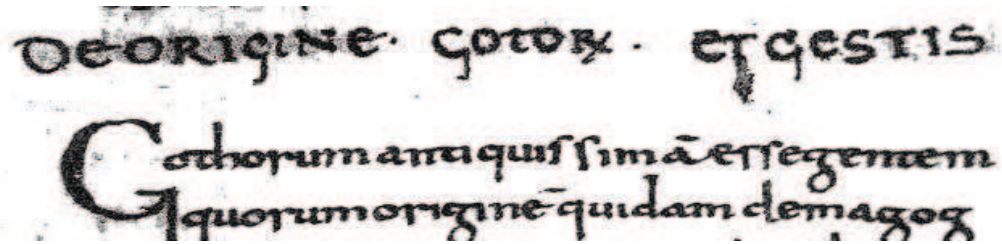 DE ORIGINE · GOTOꝜ · ET GESTIS
Gothorum antiquissimā esse gentem
quorum originē quidam de magog